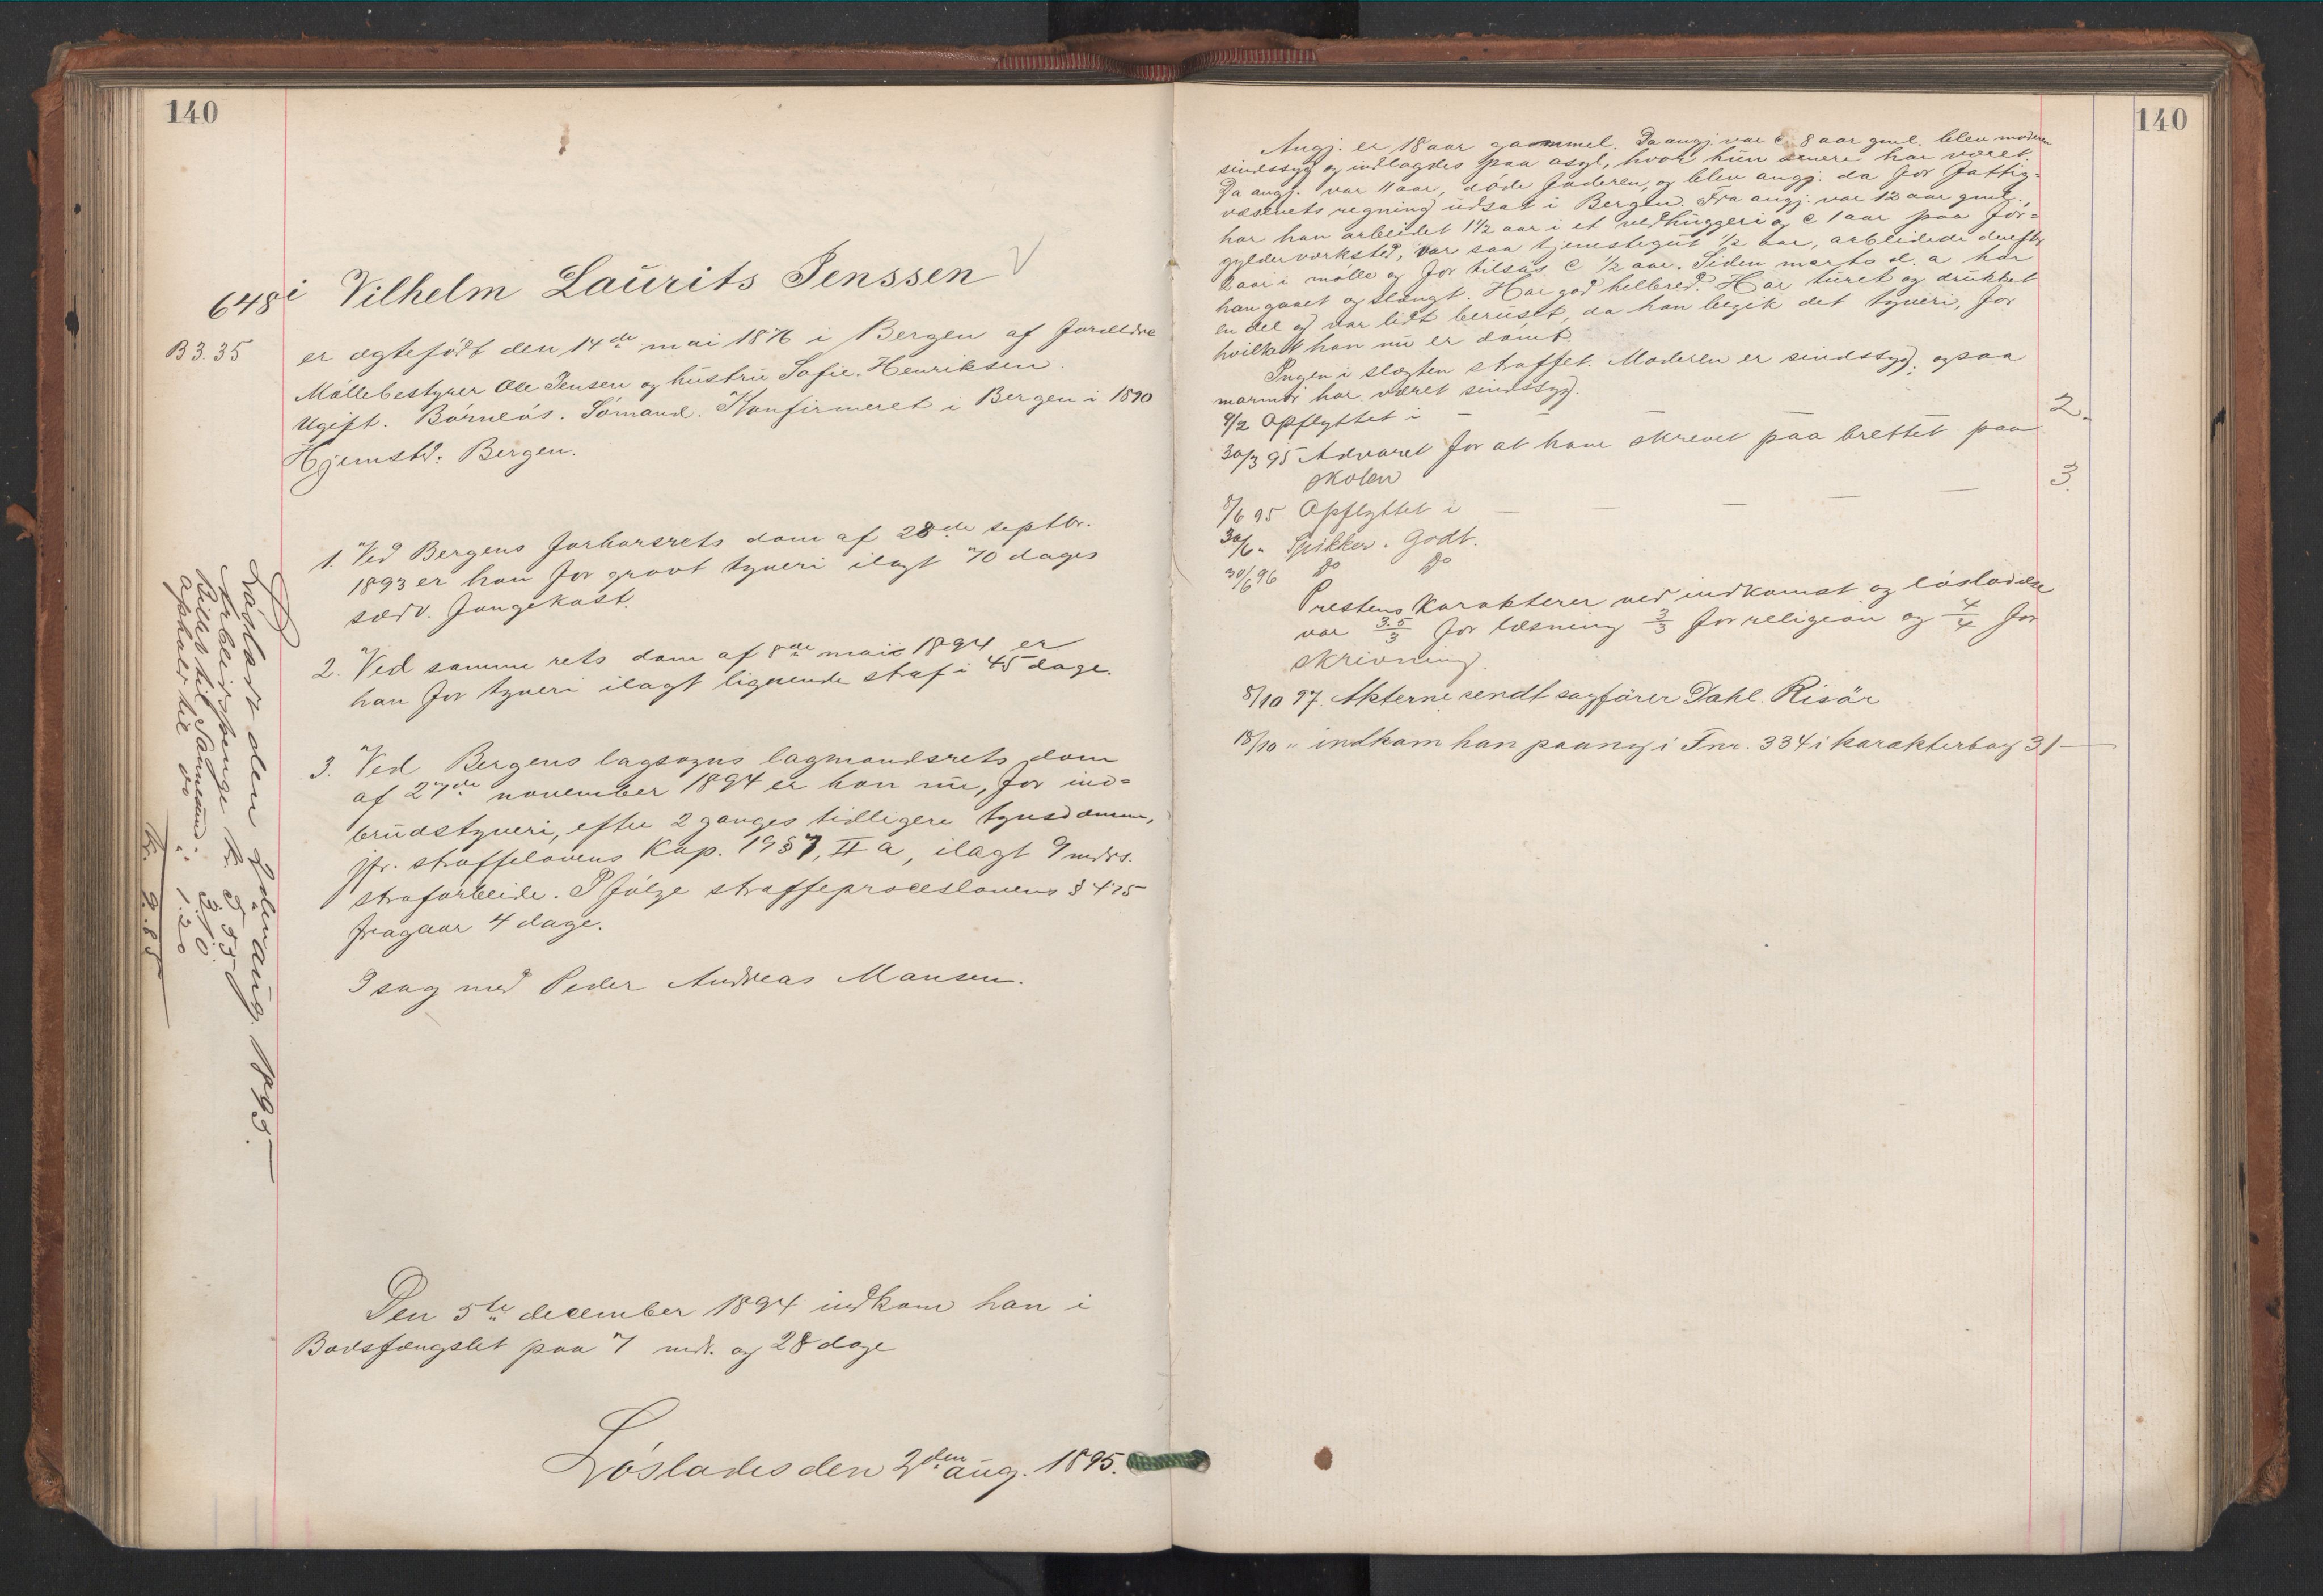 140
648 i Vilhelm Laurits Jenssen
B 3. 35
er ægtefödt den 14de mai 1876 i Bergen af forældre
Möllebestyrer Ole Jensen og hustru Sofie Henriksen.
Ugift. Börnlös. Sömand. Konfirmeret i Bergen i 1890
Hjemstd: Bergen.
1. Ved Bergens forhörsrets dom af 28de septbr.
1893 er han for grovt tyveri ilagt 70 dages
sædv. fangekost.
2. Ved samme rets dom af 8de mai 1894 er
han for tyveri ilagt lignende straf i 45 dage.
3. Ved Bergens lagsogns lagmandsrets dom
af 27de november 1894 er han nu, for ind=
brudstyveri, efter 2 ganges tidligere tyvsdomme,
jfr. straffelovens Kap. 19 § 7, II a, ilagt 9 mdrs.
strafarbeide. Ifölge straffeproceslovens § 475
fragaar 4 dage.
I sag med Peder Andreas Mansen.
Den 5te december 1894 indkom han i
Bodsfængslet paa 7 mdr. og 28 dage
Lösladesden 2den aug. 1895.
Lösladt den 2den aug. 1895.
Arbeidspenge kr. 5.55
Billet til Sannesund " 3.10
Ophold til do " 1.20
Kr. 9.85
140
Angj. er 18 aar gammel. Da angj. var c. 8 aar gml. blev moderen
sindssyg og indlagdes paa asyl, hvor hun senere har været.
Da angj. var 11 aar, döde faderen, og blev angj. da for fattig=
væsenets regning udsat i Bergen. Fra angj. var 12 aar gml.,
har han arbeidet 1½ aar i et vedhuggeri og c 1 aar paa for=
gylderværksted, var saa tjenestegut ½ aar, arbeidede derefter
2 aar i mölle og for tilsös c ½ aar. Siden marts d. a har
han gaaet og slængt. Har god helbred. Har turet og drukket
en del og var lidt beruset, da han begik det tyveri, for
hvilket han nu er dömt.
Ingen i slægten straffet. Moderen er sindssyg; ogsaa
marmor har været sindssyg.
9/2 Opflyttet i — — — — 2.
30/3 95 Advaret for at have skrevet paa brettet paa
skolen
8/6 95 Opflyttet i — — — — — 3.
30/6 " Spikker. Godt.
30/6 96 do do
Prestens karakterer ved indkomst og lösladelse
var 3.5/3 for læsning 3/3 for religion og 4/4 for
skrivning.
8/10 97. Akterne sendt sagförer Dahl. Risör
18/10 " indkom han paany i Fnr. 334 i karakterbog 31 —